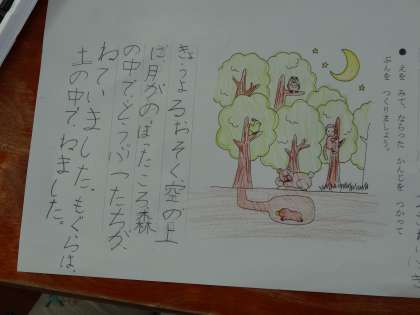 ● えを みて、ならった かんじを つかって
ぶんを つくりましょう。
きょうよるおそく、空の上
に月がのぼったころ森
の中で、どうぶつたちが、
ねていました。もぐらは、
土の中で、ねました。